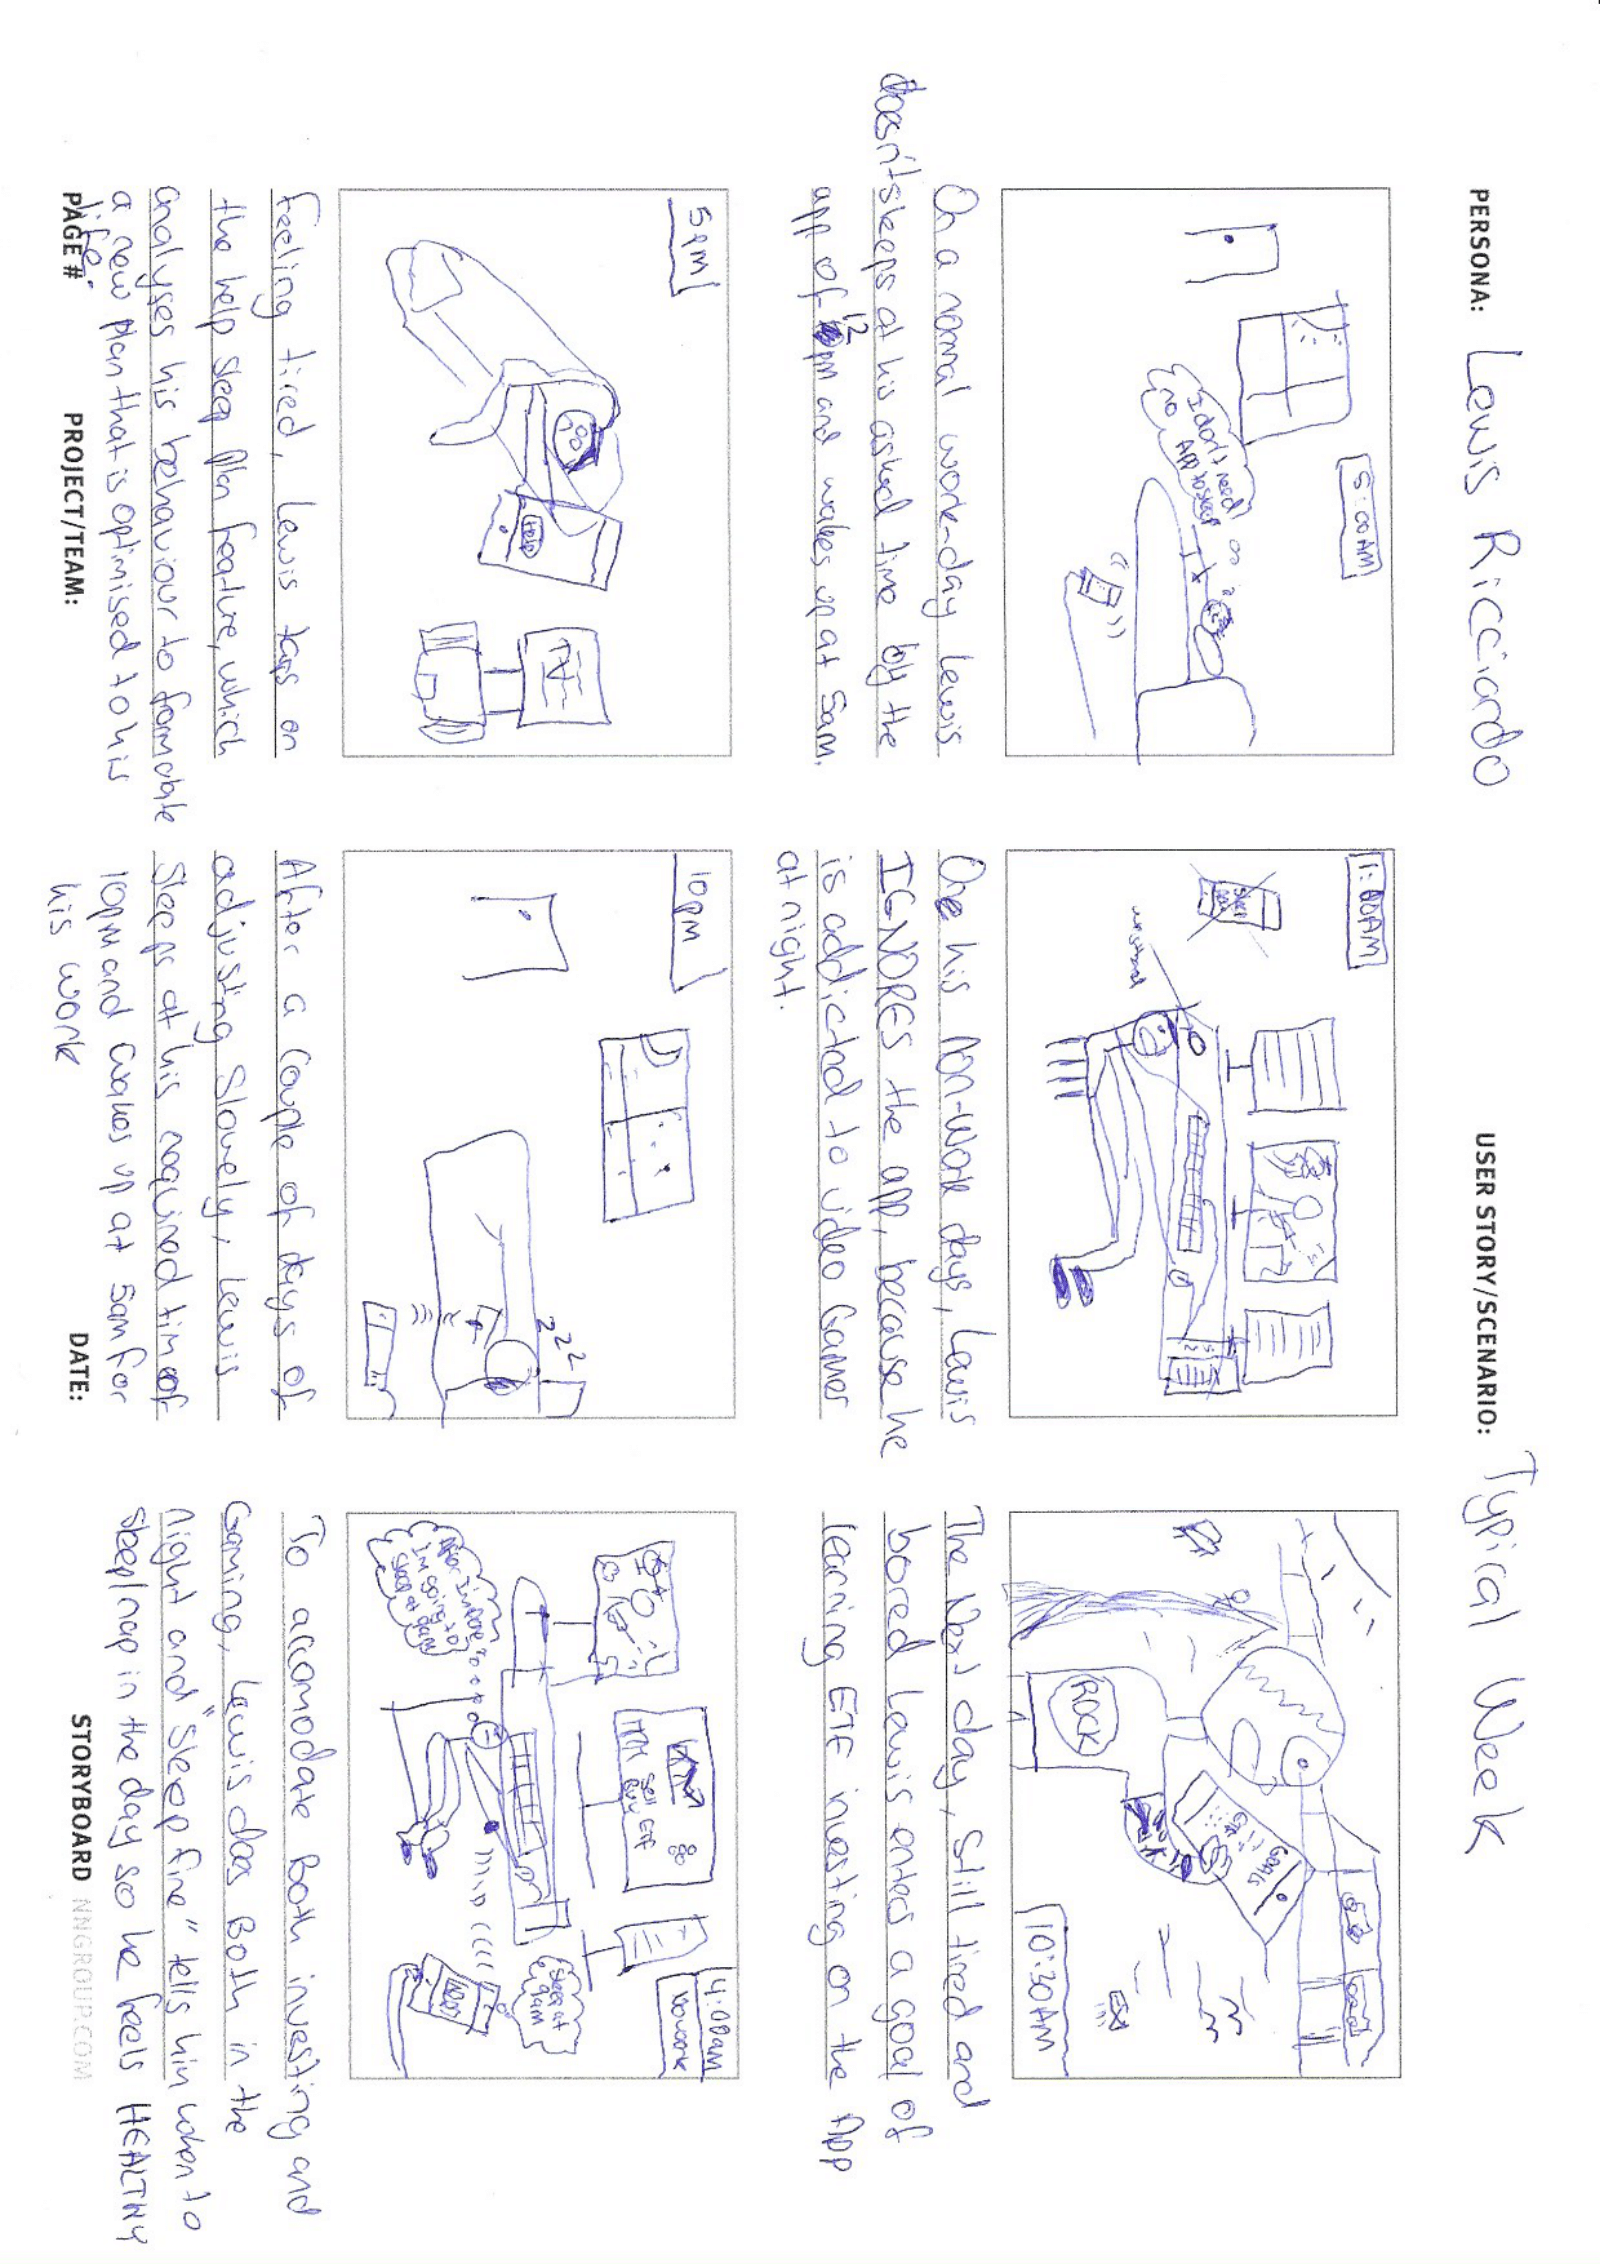 PERSONA: Lewis Ricciardo
USER STORY/SCENARIO: Typical Week
5:00AM
I don't need
no App to sleep
On a normal work-day Lewis
doesn't sleeps at his asked time by the
app of 12pm and wakes up at 5am.
1:00AM
One his non-work days, Lewis
IGNORES the app, because he
is addicted to video Games
at night.
ROCK
GOALS
10:30AM
The Next day, still tired and
bored Lewis enters a goal of
learning ETF investing on the App
5pm
Help
feeling tired, Lewis taps on
the help sleep plan feature, which
analyses his behaviour to formulate
a new plan that is optimised to his
life.
10pm
zzz
After a couple of days of
adjusting Slowely, Lewis
Sleeps at his required time of
10pm and wakes up at 5am for
his work
4:00am
no work
Sell
Buy ETF
After I'm done
I'm going to
sleep at
Sleep at
To accomodate Both investing and
Gaming, Lewis does Both in the
night and "Sleep fine" tells him when to
sleep/nap in the day so he feels HEALTHY
PAGE #:
PROJECT/TEAM:
DATE:
STORYBOARD NNGROUP.COM